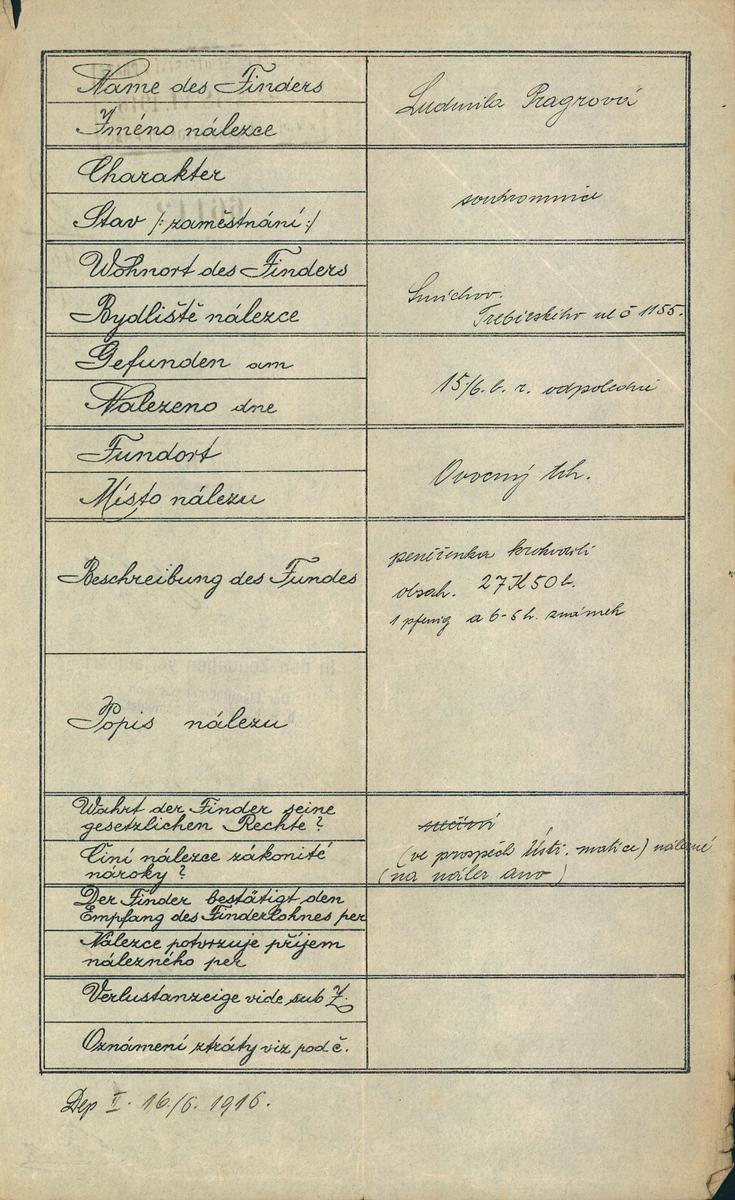 Name des Finders
Jméno nálezce
Ludmila Pragrová
Charakter
Stav /: zaměstnání :/
soukromnice
Wohnort des Finders
Bydliště nálezce
Smíchov.
Třebízského ul č 1155.
Gefunden am
Nalezeno dne
15/6. t. r. odpoledne
Fundort
Místo nálezu
Ovocný trh.
Beschreibung des Fundes
Popis nálezu
peněženka
obsah. 27 K 50 h.
1 pfenig a 6-5 h. známek
Wahrt der Finder seine
gesetzlichen Rechte?
Činí nálezce zákonité
nároky?
(ve prospěch Ústř. matice) nálezné
(na nález ano)
Der Finder bestätigt den
Empfang des Finderlohnes per
Nálezce potvrzuje příjem
nálezného per
Verlustanzeige vide sub Z.
Oznámení ztráty viz pod č.
Dep I. 16./6. 1916.